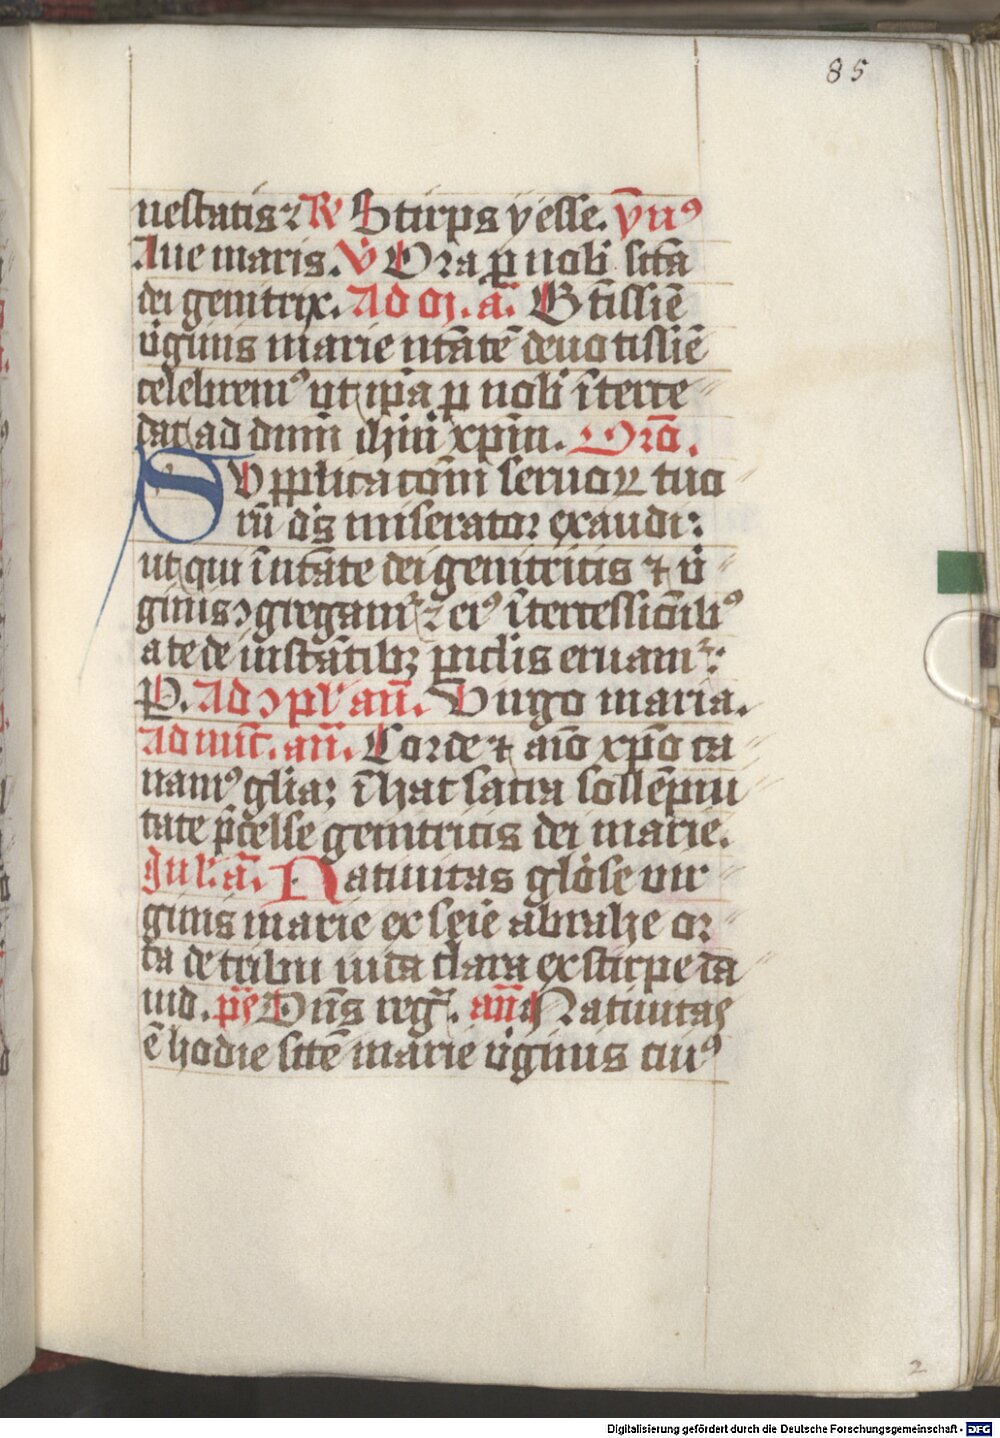 85
uestatis ⁊ R̸ Stirps yesse. ỹn⁹
Aue maris. V̇ Ora ꝓ nob̄ sc̄ta
dei genitrix. Ad m̄. a᷑. Gt̄issīe
v̇ginis marie nt̄ātē deuotissīe
celebrem⁹ ut ip̄a ꝓ nob̄ īterce
dat ad dnm̄ ihm̄ xp̄m. Orō.
SVpplicacōm seruoꝝ tuo
rū d̄s miserator exaudi:
ut qui ī nt̄āte dei genitricis ⁊ v̇
ginis ɔgregamᷣ ⁊ ei⁹ īterꞇessiōīb⁹
a te de instātibꝫ ꝑiclis eruamᷣ:
P. Ad ɔpl̄ an̄. Virgo maria.
Ad nūc. an̄. Corde ⁊ aīo xp̄o ca
nam⁹ glīaꝫ ī hac sacra sollēpni
tate p̄celse genitricis dei marie.
Inv̄. ā. Natiuitas glōse vir
ginis marie ex seīe abrahe or
ta de tribu iuda clara ex stirpe da
uid. p̄s Dn̄s reg̃. an̄ Natiuitas
ē hodie sc̄tē marie v̇ginis cui⁹
2
Digitalisierung gefördert durch die Deutsche Forschungsgemeinschaft - DFG